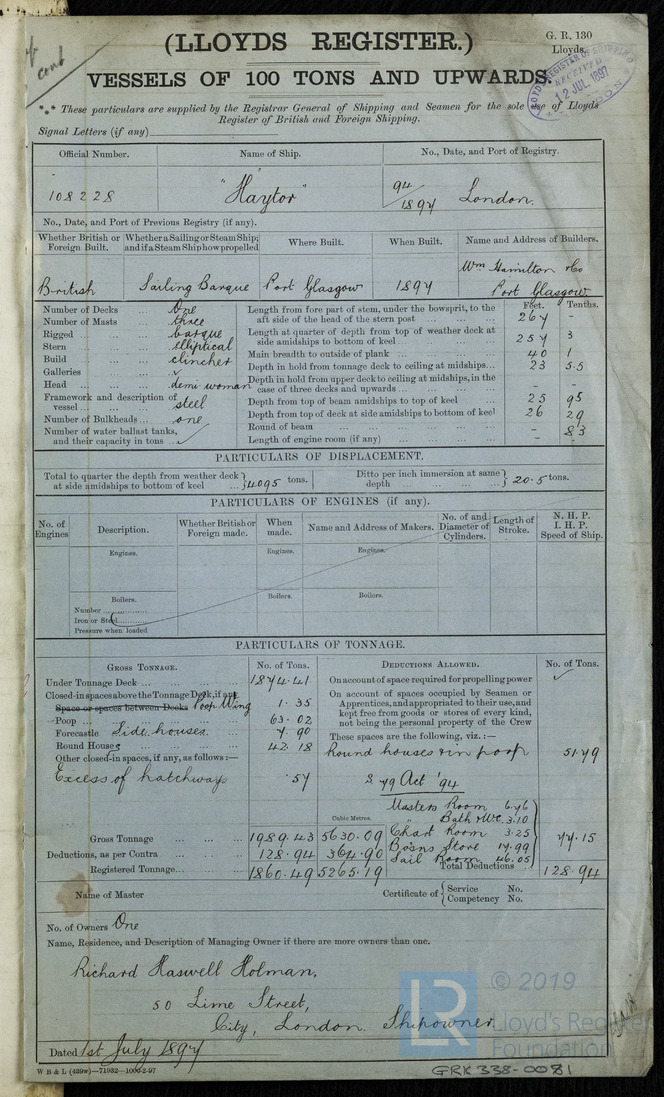 (LLOYDS REGISTER.)
G. R. 130
Lloyds.
VESSELS OF 100 TONS AND UPWARDS.
LLOYD'S REGISTER OF SHIPPING
RECEIVED
12 JUL 1897
LONDON
*** These particulars are supplied by the Registrar General of Shipping and Seamen for the sole use of Lloyds
Register of British and Foreign Shipping.
Signal Letters (if any)
Official Number. Name of Ship. No., Date, and Port of Registry.
108228 "Haytor" 94/1897 London.
No., Date, and Port of Previous Registry (if any).
Whether British or Foreign Built. Whether a Sailing or Steam Ship; and if a Steam Ship how propelled Where Built. When Built. Name and Address of Builders.
British Sailing Barque Port Glasgow 1897 Wm Hamilton & Co Port Glasgow
Number of Decks One
Number of Masts three
Rigged barque
Stern elliptical
Build clincher
Galleries ✓
Head demi woman
Framework and description of vessel steel
Number of Bulkheads one
Number of water ballast tanks, and their capacity in tons ✓
Feet. Tenths.
Length from fore part of stem, under the bowsprit, to the aft side of the head of the stern post 267 -
Length at quarter of depth from top of weather deck at side amidships to bottom of keel 257 3
Main breadth to outside of plank 40 1
Depth in hold from tonnage deck to ceiling at midships 23 5.5
Depth in hold from upper deck to ceiling at midships, in the case of three decks and upwards - -
Depth from top of beam amidships to top of keel 25 95
Depth from top of deck at side amidships to bottom of keel 26 29
Round of beam - 83
Length of engine room (if any) -
PARTICULARS OF DISPLACEMENT.
Total to quarter the depth from weather deck at side amidships to bottom of keel } 4095 tons. Ditto per inch immersion at same depth } 20.5 tons.
PARTICULARS OF ENGINES (if any).
No. of Engines Description. Whether British or Foreign made. When made. Name and Address of Makers. No. of and Diameter of Cylinders. Length of Stroke. N. H. P. I. H. P. Speed of Ship.
Engines. Engines. Engines.
Boilers. Boilers. Boilers.
Number
Iron or Steel
Pressure when loaded
PARTICULARS OF TONNAGE.
GROSS TONNAGE. No. of Tons. DEDUCTIONS ALLOWED. No. of Tons.
Under Tonnage Deck 1874.41
Closed-in spaces above the Tonnage Deck, if any
Space or spaces between Decks Poop Wing 1.35
Poop 63.02
Forecastle Side houses. 7.90
Round Houses 42.18
Other closed-in spaces, if any, as follows:—
Excess of hatchways .57
On account of space required for propelling power ✓
On account of spaces occupied by Seamen or Apprentices, and appropriated to their use, and kept free from goods or stores of every kind, not being the personal property of the Crew
These spaces are the following, viz.:—
Round houses & in poop 51.79
S 79 Act '94
Masters Room 6.76
" Bath & WC. 3.10
Chart Room 3.25
Bosns Store 17.99
Sail Room 46.05
77.15
Cubic Metres.
Gross Tonnage 1989.43 5630.09
Deductions, as per Contra 128.94 364.90
Registered Tonnage 1860.49 5265.19
Total Deductions 128.94
Name of Master Certificate of { Service No. Competency No.
No. of Owners One
Name, Residence, and Description of Managing Owner if there are more owners than one.
Richard Haswell Holman,
50 Lime Street,
City, London. Shipowner
Dated 1st July 1897
W B & L (439w)—71932—1000-2-97
GRK 338-0081
LR © 2019
Lloyd's Register
Foundation